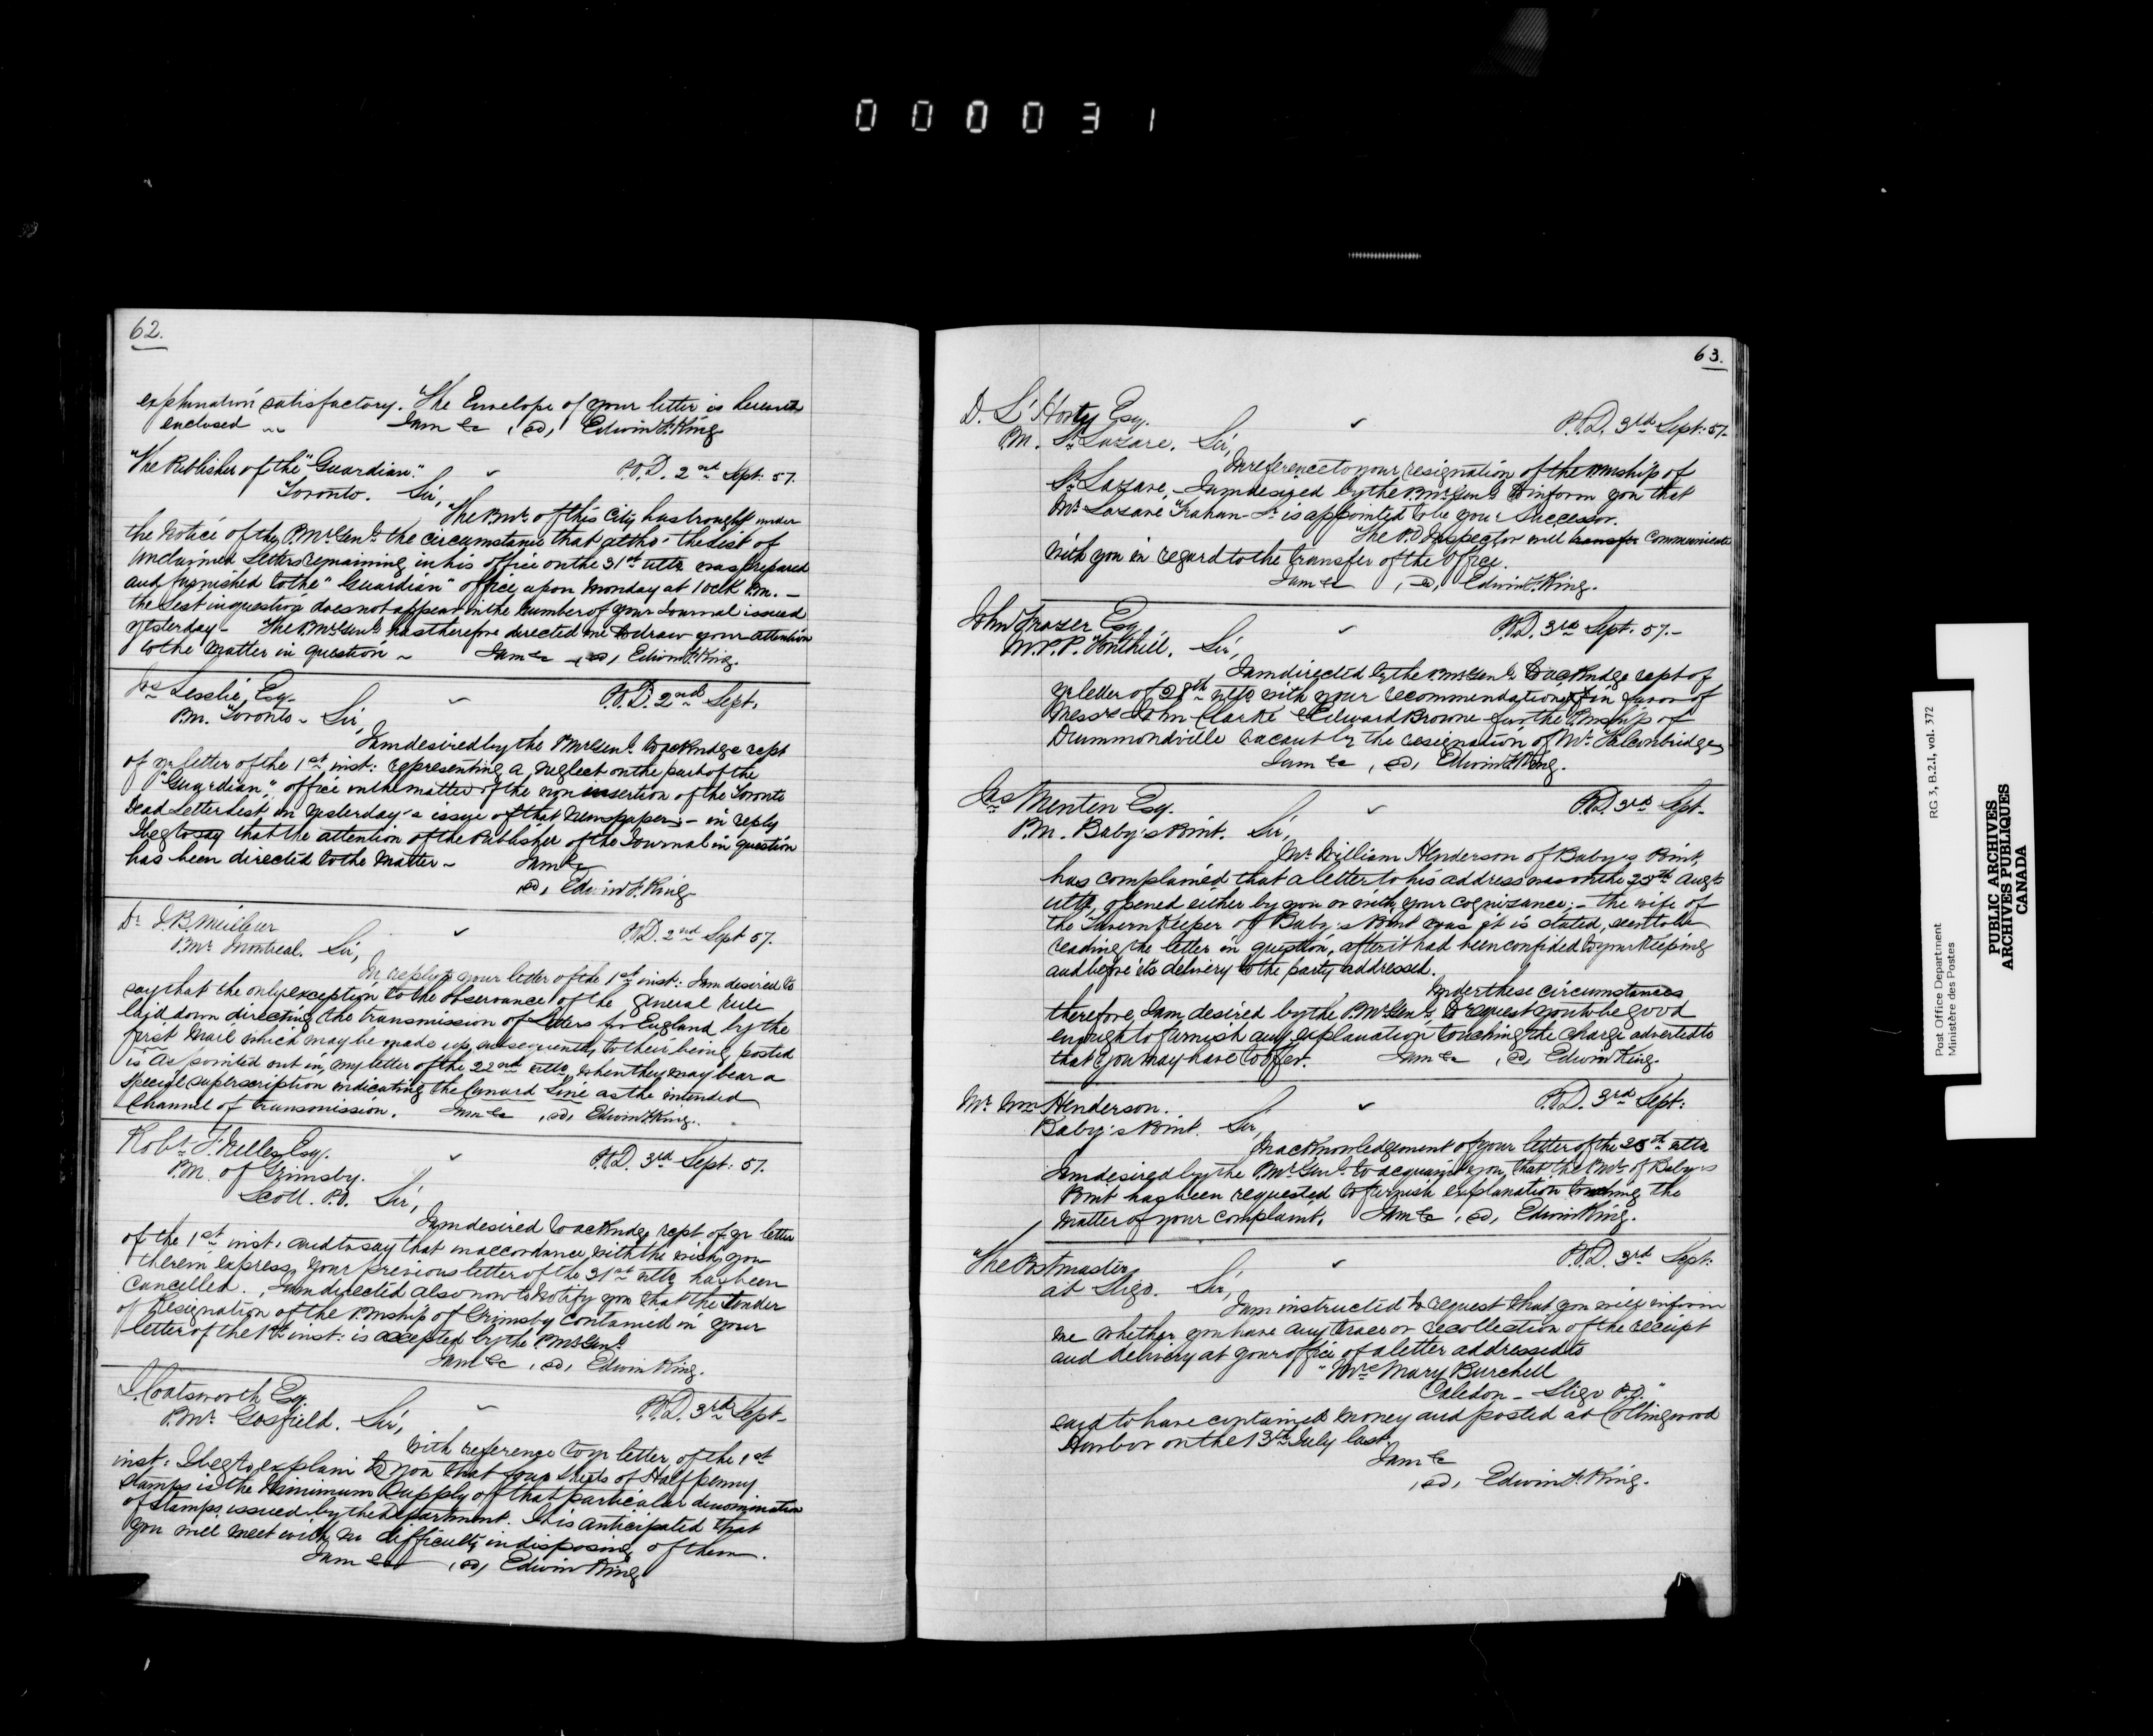 000031
62.
explanation satisfactory. The Envelope of your letter is herewith
enclosed ~ I am &c, (sd) Edwin F. King
The Publisher of the "Guardian." P.O.D. 2nd Sept: 57.
Toronto. Sir,
The P.Mr. of this City has brought under
the notice of the P.Mr. Genl. the circumstance that altho' the List of
Unclaimed Letters remaining in his office on the 31st ulto was prepared
and furnished to the "Guardian" office upon Monday at 1 oClk P.M. —
the List in question does not appear in the number of your Journal issued
yesterday — The P.Mr. Genl. has therefore directed me to draw your attention
to the matter in question ~ I am &c (sd) Edwin F. King.
Jas Lesslie, Esq. P.O.D. 2nd Sept.
P.M. Toronto ~ Sir,
I am desired by the P.Mr. Genl. to ackndge rcpt
of yr letter of the 1st inst: representing a neglect on the part of the
"Guardian" office in the matter of the non insertion of the Toronto
Dead Letter List in yesterday's issue of that Newspaper; — in reply
I beg to say that the attention of the Publisher of the Journal in question
has been directed to the matter — I am &c
(sd) Edwin F. King
Dr. J. B. Meilleur P.O.D. 2nd Sept 57.
P.Mr. Montreal. Sir,
In reply to your letter of the 1st inst: I am desired to
say that the only exception to the observance of the general rule
laid down directing the transmission of Letters for England by the
first Mail which may be made up subsequently to their being posted
is as pointed out in my letter of the 22nd ulto, when they may bear a
special superscription indicating the Cunard Line as the intended
channel of transmission. I am &c, (sd) Edwin F. King.
Robt. F. Nelles Esq. P.O.D. 3rd Sept: 57.
P.M. of Grimsby.
Scott. P.O. Sir,
I am desired to ackndge rcpt. of yr letter
of the 1st inst. and to say that in accordance with the wish you
therein express, your previous letter of the 31st ulto has been
cancelled. I am directed also now to notify you that the tender
of Resignation of the Pmship of Grimsby contained in your
letter of the 1st inst: is accepted by the P.Mr. Genl.
I am &c, (sd) Edwin King.
J. Coatsworth Esq. P.O.D. 3rd Sept —
P.Mr. Gosfield. Sir,
With reference to yr letter of the 1st
inst: I beg to explain to you that four sheets of Half penny
stamps is the Minimum supply of that particular denomination
of stamps issued by the Department. It is anticipated that
you will meet with no difficulty in disposing of them.
I am &c (sd) Edwin King
63.
D. L'Horty Esq. P.O.D. 3rd Sept: 57.
P.M. St Lazare. Sir,
In reference to your resignation of the Pmship of
St Lazare, — I am desired by the P.Mr. Genl. to inform you that
Mr. Lazare Trahan — Sr is appointed to be your Successor.
The P.O. Inspector will transfer Communicate
with you in regard to the transfer of the Office.
I am &c, (sd) Edwin F. King.
John Frazer Esq. P.O.D. 3rd Sept. 57. —
M.P.P. Fonthill. Sir,
I am directed by the P.Mr. Genl. to acKndge rcpt of
yr letter of 28th ulto with your recommendation in favor of
Messrs John Clarke & Edward Browne for the Pmship of
Drummondville vacant by the resignation of Mr. Falconbridge
I am &c, (sd) Edwin F. King.
Jas Menten Esq. P.O.D. 3rd Sept.
P.M. Baby's Point. Sir,
Mr. William Henderson of Baby's Point,
has complained that a letter to his address was on the 25th Augt
ulto, opened either by you or with your cognizance; — the wife of
the Tavern Keeper of Baby's Point was it is stated, seen to be
reading the letter in question, after it had been confided to your keeping
and before its delivery to the party addressed.
Under these circumstances
therefore, I am desired by the P.Mr. Genl. to request you to be good
enough to furnish any explanation touching the charge adverted to
that you may have to offer. I am &c, (sd) Edwin King.
Mr. Wm Henderson. P.O.D. 3rd Sept:
Baby's Point. Sir,
In acknowledgement of your letter of the 25th ulto
I am desired by the P.Mr. Genl. to acquaint you, that the P.Mr. of Baby's
Point has been requested to furnish explanation touching the
matter of your complaint. I am &c, (sd) Edwin King.
The Postmaster P.O.D. 3rd Sept:
at Sligo. Sir,
I am instructed to request that you will inform
me whether you have any trace or recollection of the receipt
and delivery at your office of a letter addressed to
"Mrs Mary Burchell
Caledon — Sligo P.O."
said to have contained money and posted at Collingwood
Harbor on the 13th July last.
I am &c
(sd) Edwin F. King.
Post Office Department RG 3, B.2.I, vol. 372
Ministère des Postes
PUBLIC ARCHIVES
ARCHIVES PUBLIQUES
CANADA